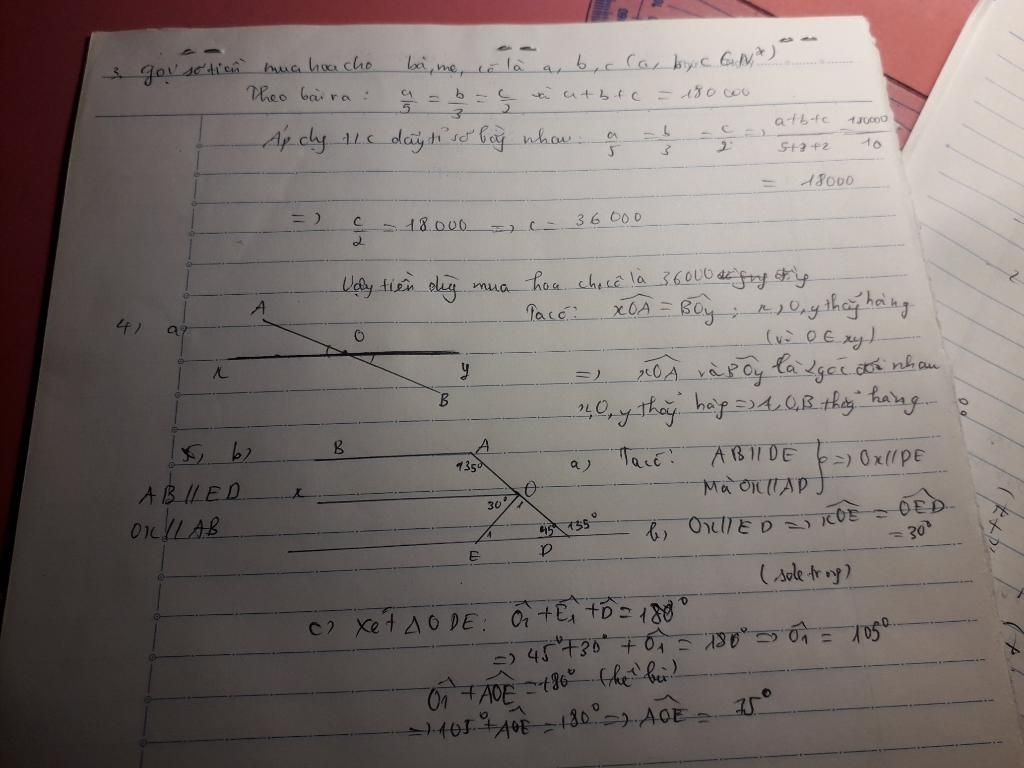 3, gọi số tiền mua hoa cho bà, mẹ, cô là a, b, c (a, b, c ∈ N*)
Theo bài ra: a/5 = b/3 = c/2 và a+b+c = 180 000
Áp dụng t/c dãy tỉ số bằng nhau: a/5 = b/3 = c/2 => (a+b+c)/(5+3+2) = 180000/10
= 18000
=> c/2 = 18000 => c = 36 000
Vậy tiền dùng mua hoa cho cô là 36000
4, a,
A
O
x
y
B
Ta có: xÔA = BÔy ; x, O, y thẳng hàng
(vì O ∈ xy)
=> xÔA và BÔy là 2 góc đối nhau
x, O, y thẳng hàng => A, O, B thẳng hàng
5, b,
AB // ED
Ox // AB
B
A
135°
x
O
30°
1
1
45°
135°
E
D
a, Ta có: AB // DE
Mà Ox // AB
} => Ox // DE
b, Ox // ED => xÔE = OÊD
= 30°
(sole trong)
c, Xét △ODE: Ô1 + Ê1 + D̂ = 180°
=> 45° + 30° + Ô1 = 180° => Ô1 = 105°
Ô1 + AÔE = 180° (kề bù)
=> 105° + AÔE = 180° => AÔE = 75°